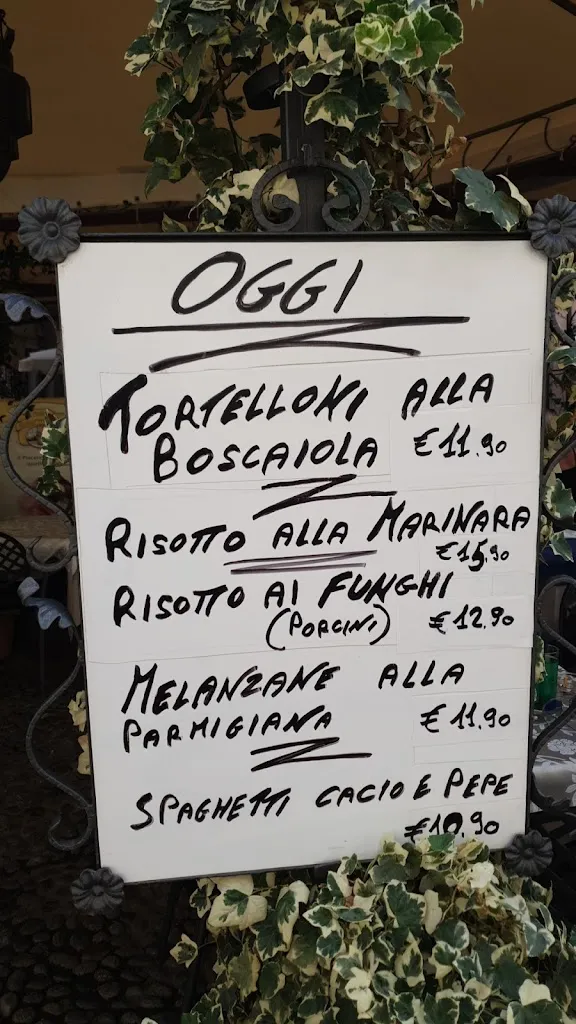 OGGI
TORTELLONI ALLA
BOSCAIOLA €11.90
RISOTTO ALLA MARINARA
€15.90
RISOTTO AI FUNGHI
(PORCINI) €12.90
MELANZANE ALLA
PARMIGIANA €11.90
SPAGHETTI CACIO E PEPE
€10.90